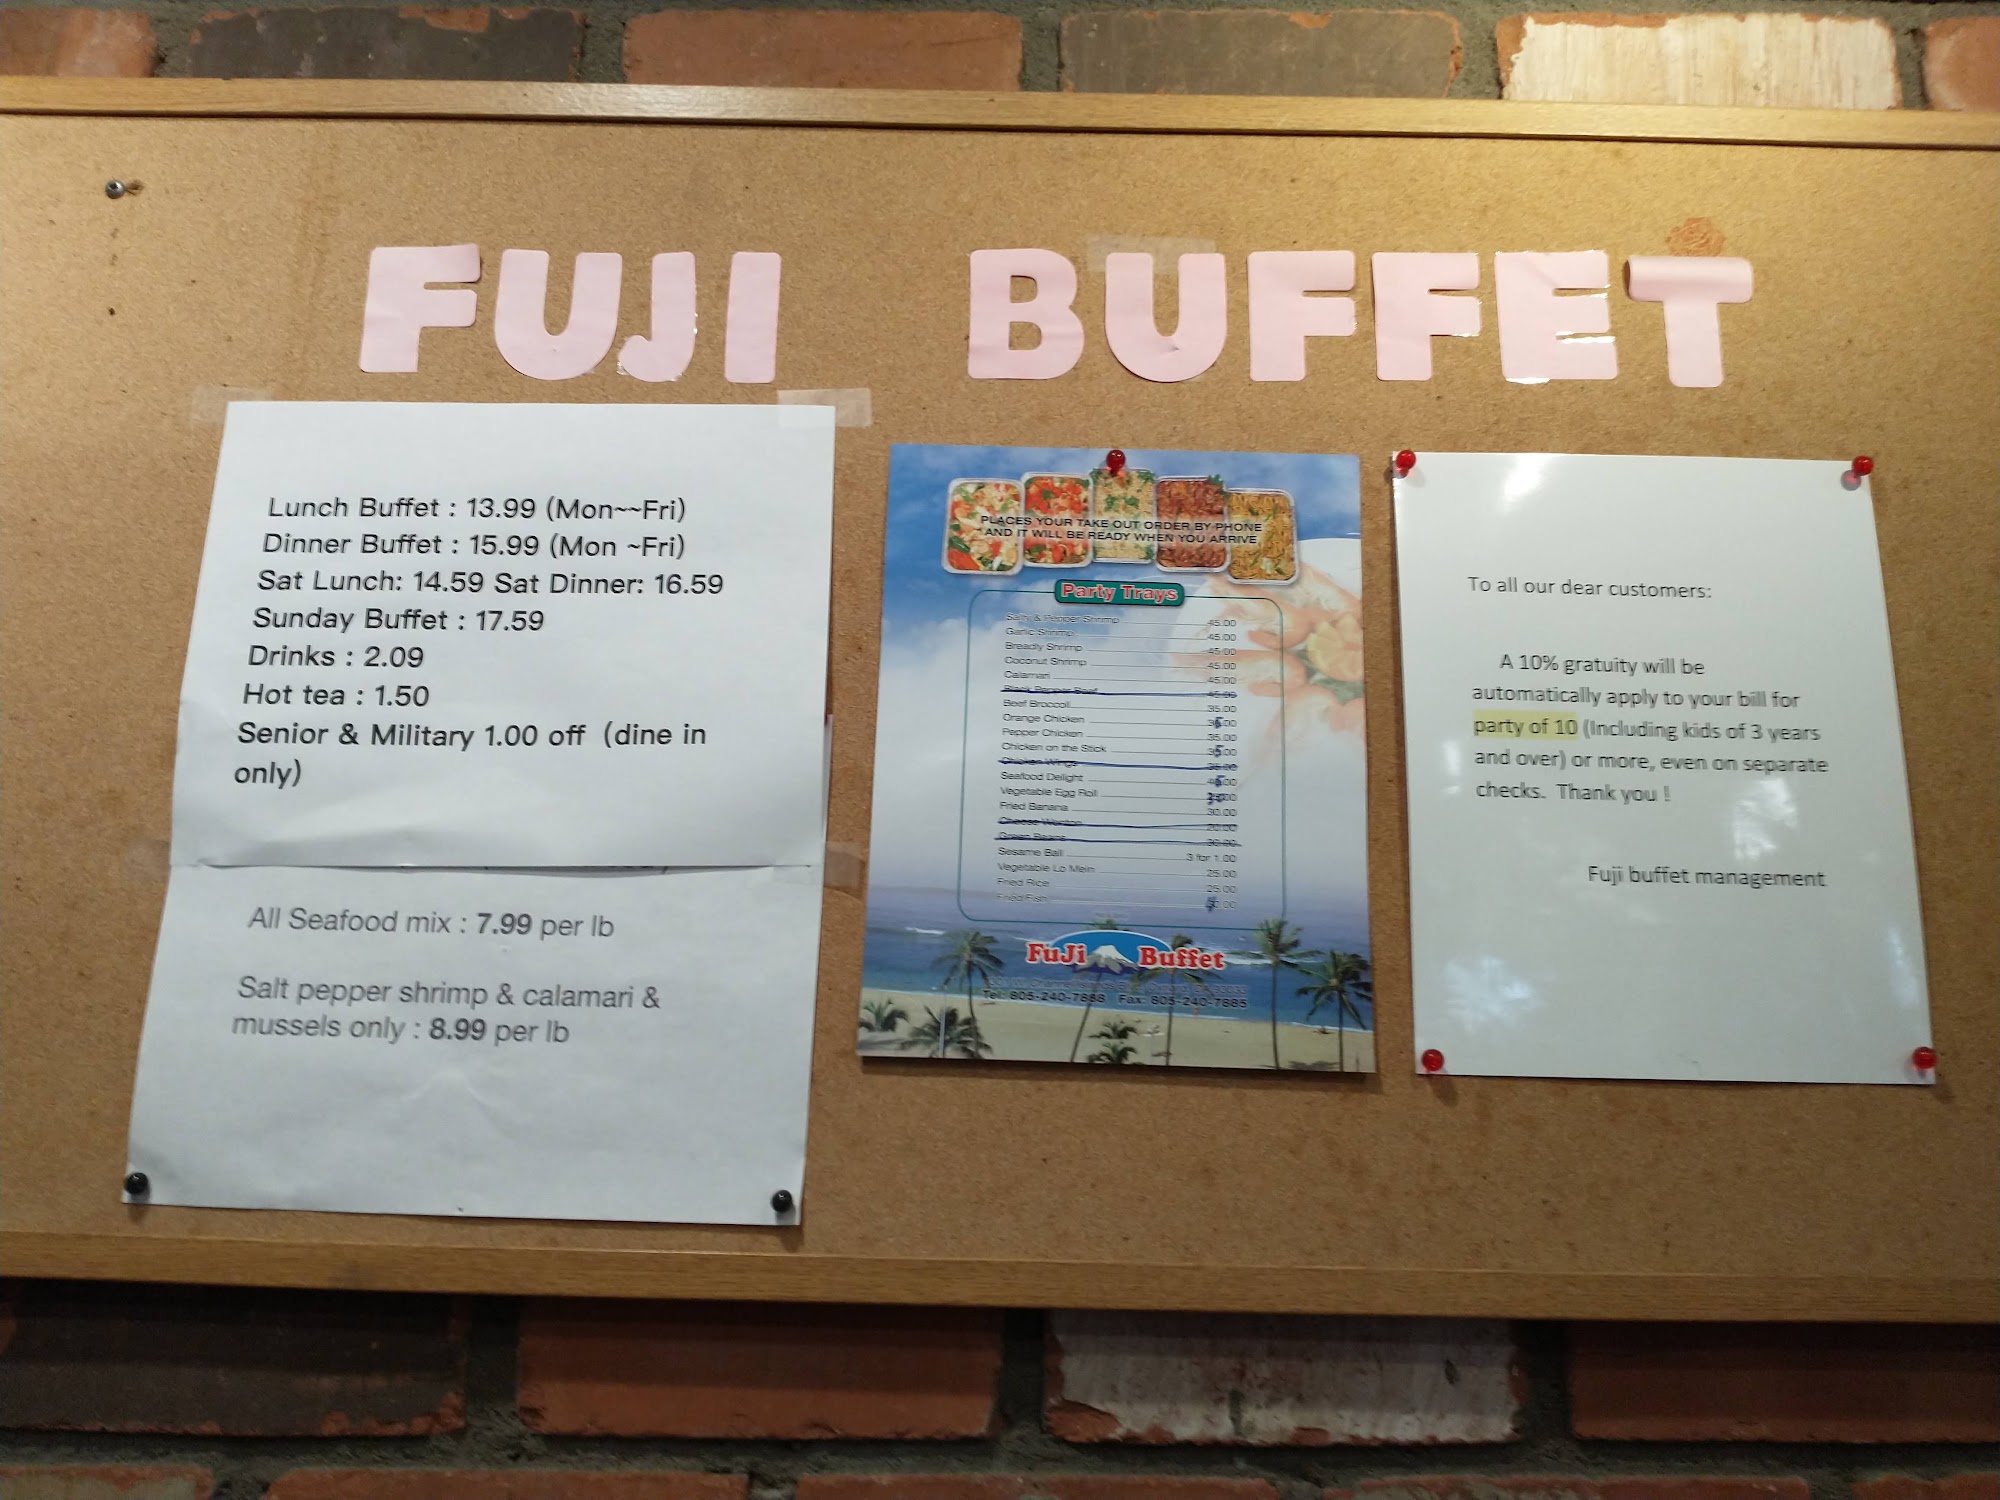 FUJI BUFFET
Lunch Buffet : 13.99 (Mon~~Fri)
Dinner Buffet : 15.99 (Mon ~Fri)
Sat Lunch: 14.59 Sat Dinner: 16.59
Sunday Buffet : 17.59
Drinks : 2.09
Hot tea : 1.50
Senior & Military 1.00 off (dine in
only)
All Seafood mix : 7.99 per lb
Salt pepper shrimp & calamari &
mussels only : 8.99 per lb
PLACES YOUR TAKE OUT ORDER BY PHONE
AND IT WILL BE READY WHEN YOU ARRIVE.
Party Trays
& Pepper Shrimp 45.00
Garlic Shrimp 45.00
Breadly Shrimp 45.00
Coconut Shrimp 45.00
Calamari 45.00
Black Pepper Beef 45.00
Beef Broccoli 35.00
Orange Chicken 35.00
Pepper Chicken 35.00
Chicken on the Stick 35.00
Chicken Wings 35.00
Seafood Delight 45.00
Vegetable Egg Roll
Fried Banana 30.00
Cheese Wonton 20.00
Green Beans 30.00
Sesame Ball 3 for 1.00
Vegetable Lo Mein 25.00
Fried Rice 25.00
Fried Fish
FuJi Buffet
Tel: 805-240-7888 Fax: 805-240-7885
To all our dear customers:
A 10% gratuity will be
automatically apply to your bill for
party of 10 (Including kids of 3 years
and over) or more, even on separate
checks. Thank you !
Fuji buffet management